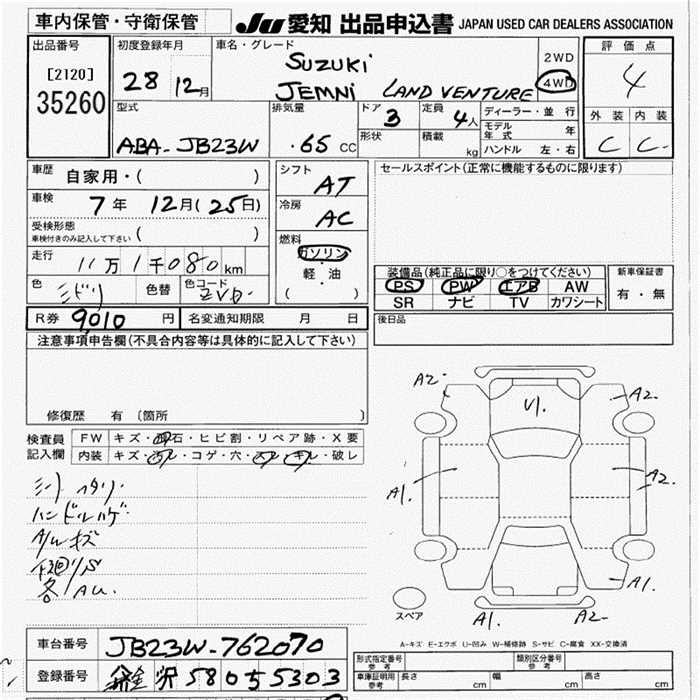 車内保管・守衛保管
JU 愛知 出品申込書 JAPAN USED CAR DEALERS ASSOCIATION
出品番号
[2120]
35260
初度登録年月
28 12月
車名・グレード
SUZUKI
JEMNI LAND VENTURE
2WD
4WD
評価点
4
外装 内装
C C-
型式
ABA-JB23W
排気量
.65 CC
ドア
3
定員
4人
形状
積載
kg
ディーラー・並行
モデル年式 年
ハンドル 左・右
車歴 自家用・( )
車検 7年 12月(25日)
受検形態
車検付きのみ記入して下さい ( )
走行 11万1千080km
色 ミドリ 色替 色コード
R券 9,010円 名変通知期限 月 日
シフト
AT
冷房
AC
燃料
ガソリン
軽・油
( )
セールスポイント(正常に機能するものに限ります)
装備品(純正品に限り○をつけてください)
PS PW エアB AW
SR ナビ TV カワシート
新車保証書
有・無
後日品
注意事項申告欄(不具合内容等は具体的に記入して下さい)
修復歴 有 〔箇所 〕
検査員記入欄
FW キズ・飛石・ヒビ割・リペア跡・X要
内装 キズ・汚レ・コゲ・穴・スレ・キレ・破レ
シートヘタリ
ハンドルハゲ
A/Wキズ
下廻リS
各AU.
A2
U1.
A2.
A1.
A2.
A1.
A1.
A2-
スペア
A-キズ E-エクボ U-凹み W-補修跡 S-サビ C-腐食 XX-交換済
車台番号 JB23W-762070
登録番号 沢 580 5 5303
形式指定番号 参考
類別区分番号 参考
車庫証明用 参考 長さ cm 幅 cm 高さ cm